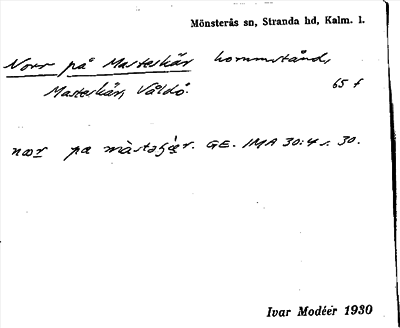 Mönsterås sn, Stranda hd, Kalm. l.
Norr på Masteskär kommstånd,
Masteskär, Våldö. 65 f
nœr pa màstaʃǽr. GE. IMA 30:4 s. 30.
Ivar Modéer 1930